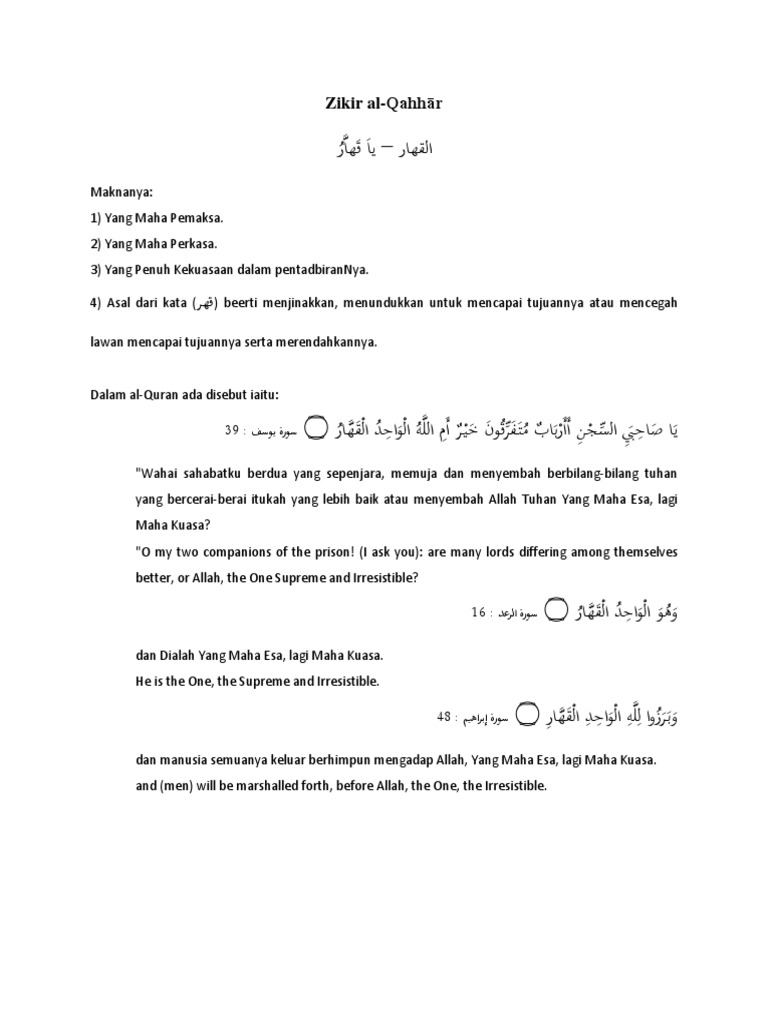 Zikir al-Qahhār
القهار – ياَ قَهاَّرُ
Maknanya:
1) Yang Maha Pemaksa.
2) Yang Maha Perkasa.
3) Yang Penuh Kekuasaan dalam pentadbiranNya.
4) Asal dari kata (قهر) beerti menjinakkan, menundukkan untuk mencapai tujuannya atau mencegah
lawan mencapai tujuannya serta merendahkannya.
Dalam al-Quran ada disebut iaitu:
يَا صَاحِبَيِ السِّجْنِ أَأَرْبَابٌ مُتَفَرِّقُونَ خَيْرٌ أَمِ اللَّهُ الْوَاحِدُ الْقَهَّارُ ۝ سورة يوسف : 39
"Wahai sahabatku berdua yang sepenjara, memuja dan menyembah berbilang-bilang tuhan
yang bercerai-berai itukah yang lebih baik atau menyembah Allah Tuhan Yang Maha Esa, lagi
Maha Kuasa?
"O my two companions of the prison! (I ask you): are many lords differing among themselves
better, or Allah, the One Supreme and Irresistible?
وَهُوَ الْوَاحِدُ الْقَهَّارُ ۝ سورة الرعد : 16
dan Dialah Yang Maha Esa, lagi Maha Kuasa.
He is the One, the Supreme and Irresistible.
وَبَرَزُوا لِلَّهِ الْوَاحِدِ الْقَهَّارِ ۝ سورة إبراهيم : 48
dan manusia semuanya keluar berhimpun mengadap Allah, Yang Maha Esa, lagi Maha Kuasa.
and (men) will be marshalled forth, before Allah, the One, the Irresistible.